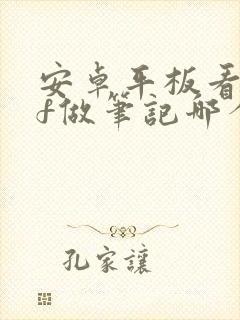 安卓平板看
f做筆記哪
孔家讓